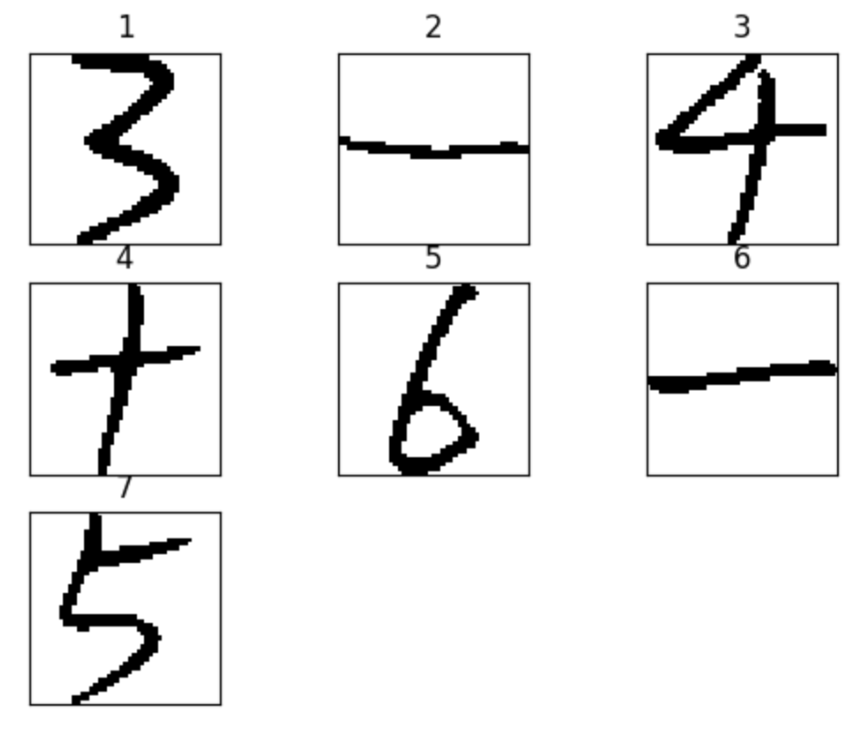 1 2 3
3 - 4
4 5 6
+ 6 -
7
5